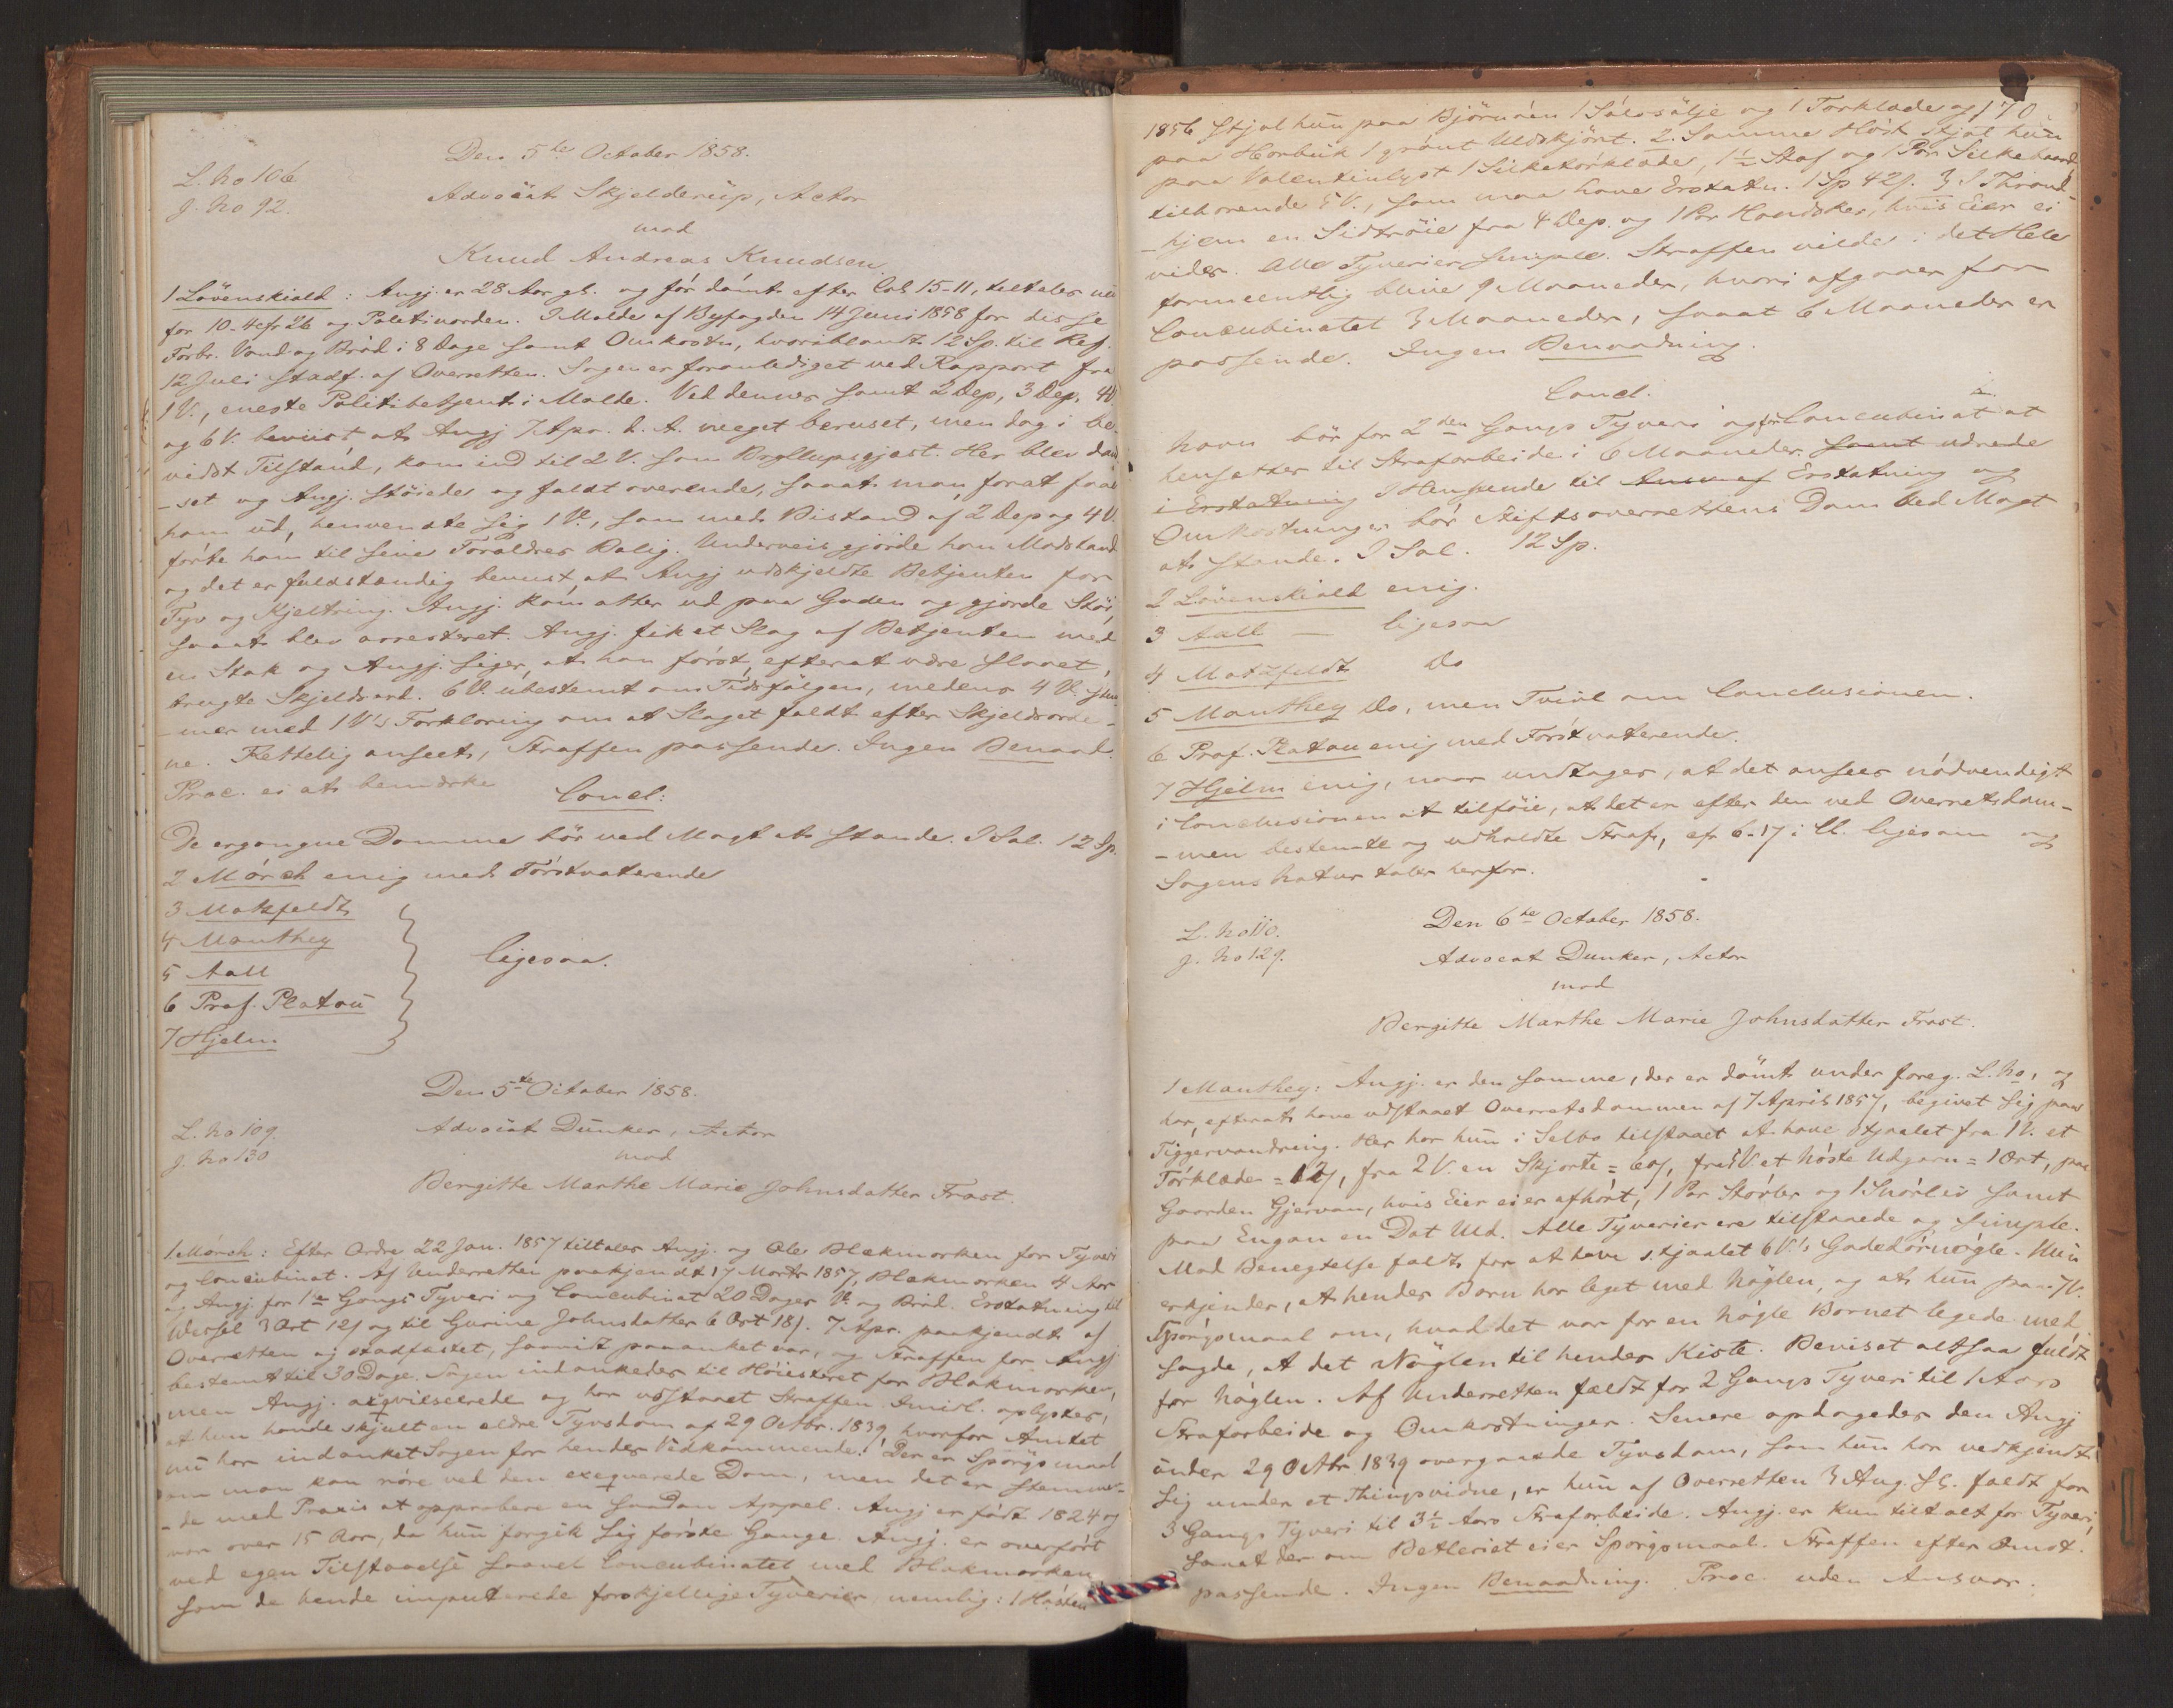 Den 5te October 1858.
L. No 106
J. No 92.
Advocat Skjelderup, Actor
mod
Knud Andreas Knudsen
1 Lövenskiold: Angj. er 28 Aar gl. og för dömt efter Cap 15-11, tiltales nu
for 10-4 cfr 26 og Politiuorden. I Molde af Byfogden 14 Juni 1858 for disse
Forbr. Vand og Bröd i 8 Dage samt Omkostn., hvoriblandt 12 Sp. til Ref.
12 Juli stadf. af Overretten. Sagen er foranlediget ved Rapport fra
1 V., eneste Politibetjent i Molde. Ved dennes samt 2 Dep, 3 Dep, 4 V.
og 6 V. beviist at Angj 7 Apr. d. A. meget beruset, men dog i be-
vidst Tilstand, kom ind til 2 V. som Bryllupsgjæst. Her blev dan
-set og Angj. stöiede og faldt overende, saaat man forat faae
ham ud, henvendte sig 1 V., som med Bistand af 2 Dep og 4 V.
förte ham til sine Forældres Bolig. Underveis gjorde han Modstand
og det er fuldstændig beviist, at Angj udskjeldte Betjenten for
Tyv og Kjeltring. Angj. kom atter ud paa Gaden og gjorde Stöi,
saaat blev arresteret. Angj. fik et Slag af Betjenten med
en Stok og Angj. siger, at han först, efterat være slaaet,
brugte Skjeldsord. 6 V. ubestemt om Tidsfölgen, medens 4 V. stem
-mer med 1 V's Forklaring om at Slaget faldt efter Skjeldsorde-
ne. Rettelig anseet, Straffen passende. Ingen Benaadn.
Proc. ei at bemærke
Concl:
De ergangne Domme bör ved Magt at stande. I Sal. 12 Sp.
2 Mörch enig med Förstvoterende
3 Motzfeldt
4 Manthey
5 Aall
6 Prof. Platou
7 Hjelm
ligesaa.
Den 5te October 1858.
L. No 109.
J. No 130
Advocat Dunker, Actor
mod
Bergitte Marthe Marie Johnsdatter Frost.
1. Mörch: Efter Ordre 22 Jan. 1857 tiltales Angj. og Ole Blekmorken for Tyveri
og Concubinat. Af Underretten paakjendt 17 Marts 1857, Blakmorken 4 Aar
og Angj. for 1ste Gangs Tyveri og Concubinat 20 Dages V. og Bröd. Erstatning til
Wessel 3 Ort 12 s og til Gurine Johnsdatter 6 Ort 18 s. 7 Apr. paakjendt af
Overretten og stadfæstet, saavidt paaanket var, og Straffen for Angj
bestemt til 30 Dage. Sagen indankedes til Höiesteret for Blakmorken,
men Angj. acqviescerede og har udstaaet Straffen. Imidl. oplystes,
at hun havde skjult en ældre Tyvsdom af 29 Octbr. 1839, hvorfor Amtet
nu har indanket Sagen for hendes Vedkommende. Der er Spörgsmaal
om man kan röre ved den exeqverede Dom, men det er stemme-
-de med Praxis at approbere en saadan Appel. Angj er född 1824 og
var over 15 Aar, da hun forgik sig förste Gange. Angj. er overfört
ved egen Tilstaaelse saavel Concubinatet med Blakmorken
som de hende imputerede forskjellige Tyverier nemlig: 1 Hösten
170
1856 stjal hun paa Björnåen 1 Sölvsölje og 1 Törklæde og
paa Horbuk 1 grönt Uldskjört. 2. Samme Höst stjal hun
paa Valentinlyst 1 Silketörklæde, 1 1/2 Stof og 1 Par Silkebaand,
tilhörende 5 V., som maa have Erstatn. 1 Sp 42 s. 3 I Thrond-
-hjem en Sidtröie fra 4 Dep. og 1 Par Handsker, hvis Eier ei
vides. Alle Tyverier simple. Straffen vilde i det Hele
formeentlig blive 9 Maaneder, hvori afgaaer for
Concubinatet 3 Maaneder, saaat 6 Maaneder er
passende. Ingen Benaadning.
Concl.
Navn bör for 2den Gangs Tyveri og for Concubinat at
hensættes til Strafarbeide i 6 Maaneder. samt udrede
i Erstatning I Henseende til Ansvaf Erstatning og
Omkostninger bör Stiftsoverrettens Dom ved Magt
at stande. I Sal. 12 Sp.
2 Lövenskiold enig.
3 Aall — ligesaa
4 Motzfeldt Do
5 Manthey Do, men Tvivl om Conclusionen.
6 Prof. Platou enig med Förstvoterende.
7 Hjelm enig, naar undtages, at det ansees nödvendigt
i Conclusionen at tilföie, at det er efter den ved Overretsdom-
-men bestemte og udholdte Straf, cfr 6-17 i Cl. ligesom og
Sagens Natur taler herfor.
Den 6te October 1858.
L. No 110.
J. No 129.
Advocat Dunker, Actor
mod
Bergitte Marthe Marie Johnsdatter Frost.
1 Manthey: Angj. er den samme, der er dömt under foreg. L. No, og
har, efterat have udstaaet Overretsdommen af 7 April 1857, begivet sig paa
Tiggervandring. Her har hun i Selbo tilstaaet at have stjaalet fra 1 V. et
Törklæde = 12 s, fra 2 V. en Skjorte = 60 s, fra 3 V. et Nöste Uldgarn = 1 Ort, paa
Gaarden Gjervan, hvis Eier ei er afhört, 1 Par Stövler og 1 Snörliv samt
paa Engan en Dot Uld. Alle Tyverier ere tilstaaede og simple.
Mod Benegtelse fældt for at have stjaalet 6 V.'s Gadedörnögle. Hun
erkjender, at hendes Barn har leget med Nöglen, og at hun paa 7 V.
Spörgsmaal om, hvad det var for en Nögle Barnet legede med
sagde, at det Nöglen til hendes Kiste. Beviset altsaa fuldt
for Nöglen. Af Underretten fældt for 2 Gangs Tyveri til 1 Aars
Strafarbeide og Omkostninger. Senere opdagedes den Angj
under 29 Octbr 1839 overgaaede Tyvsdom, som hun har vedkjendt
sig under et Thingsvidne, er hun af Overretten 3 Aug. f.A. fældt for
3 Gangs Tyveri til 3 1/2 Aars Strafarbeide. Angj. er kun tiltalt for Tyveri,
saaat der om Betleriet ei er Spörgsmaal. Straffen efter Omst.
passende. Ingen Benaadning. Proc. uden Ansvar.